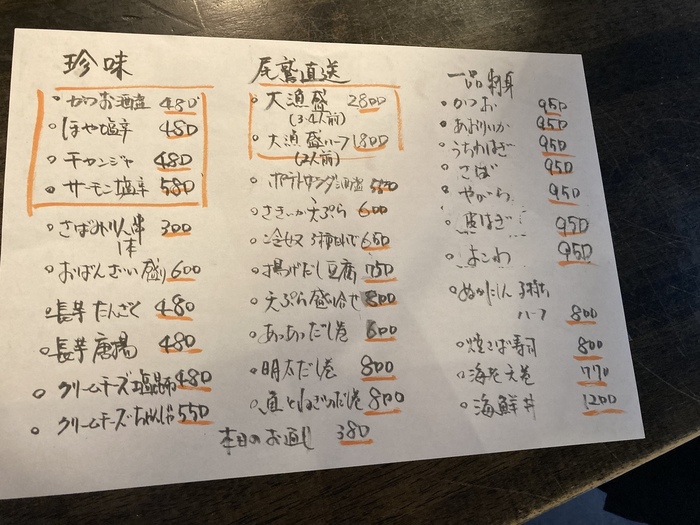 珍味
かつお酒盗 480
ほや塩辛 480
チャンジャ 480
サーモン塩辛 580
さばみりん串 300
1本
おばんざい盛り 600
長芋たんざく 480
長芋唐揚 480
クリームチーズ塩昆布 480
クリームチーズちゃんじゃ 550
尾鷲直送
大漁盛 2800
(3.4人前)
大漁盛ハーフ 1800
(2人前)
ポテトサラダ
さきいか天ぷら 600
冷奴 650
揚げだし豆腐 750
天ぷら盛り合せ 800
あつあつだし巻 600
明太だし巻 800
魚とねぎのだし巻 800
本日のお通し 380
一品刺身
かつお 950
あおりいか 950
うちわはぎ 950
こばん 950
やがら 950
皮はぎ 950
よこわ 950
ハーフ 800
焼さば寿司 800
海老天巻 770
海鮮丼 1200